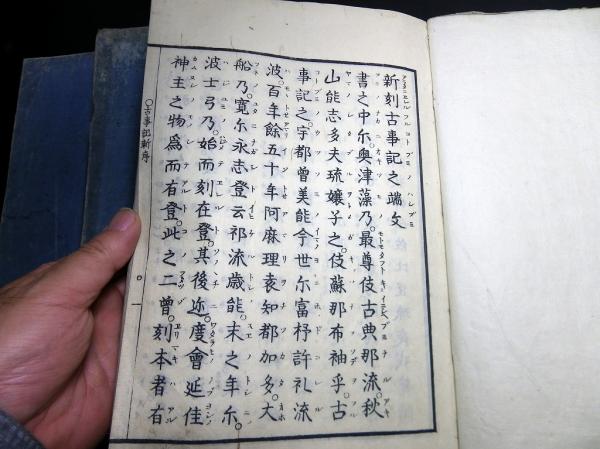 新刻古事記之端文
書之中尓。奥津藻乃。最尊伎古典那流。秋
山能志多夫琉嬢子之。伎蘇那布袖乎。古
事記之。宇都曽美能今世尓富杼許礼流
波。百年餘五十年阿麻理袁知都加多。大
船乃。寛尓永志登云祁流歳能。末之年尓。
波士弓乃。始而刻在登。其後迩。度會延佳
神主之物為而有登。此之二曽。刻本者有
〇古事記新序
〇一